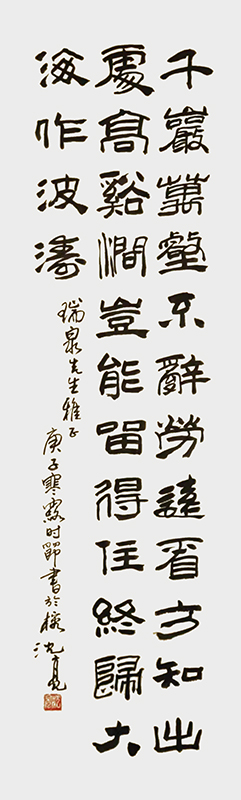 千巖萬壑不辭勞遠看方知出
處高谿澗豈能畱得住終歸大
海作波濤
瑞泉先生雅正
庚子寒露时節書於榕 沈亮